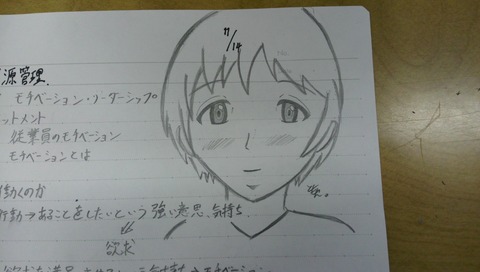 7/14
源管理.
モチベーション・リーダーシップ
ットメント
従業員のモチベーション
モチベーションとは
動くのか
行動→あることをしたいという強い意思、気持ち
欲求